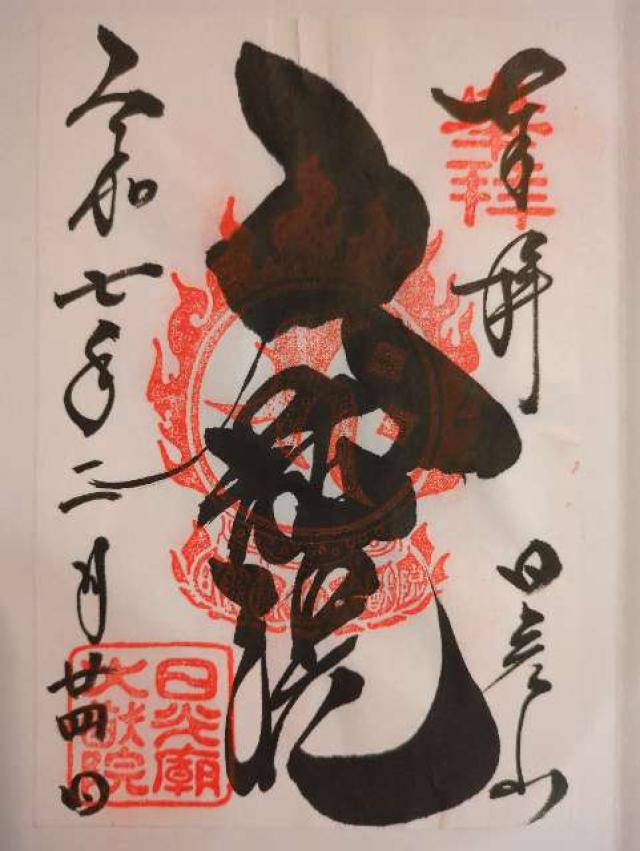 奉拝
奉拝
日光山
大猷院
令和七年二月廿四日
日光廟
大猷院